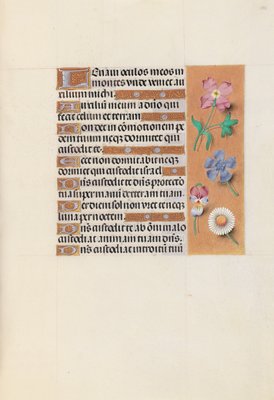 Levavi oculos meos in
montes unde veniet au
xilium michi.
Auxilium meum a dn̄o qui
fecit celum et terram.
Non det in cōmotionem pe
dem tuum neqz dormitet qui
custodit te.
Ecce non dormitabit neqz
dormiet qui custodit israel.
Dn̄s custodit te dn̄s protectō
tua super manū dexteram tuam.
Per diem sol non vret te neqz
luna per noctem.
Dn̄s custodit te ab om̄i malo
custodiat animam tuam dn̄s.
Dn̄s custodiat introitū tuū